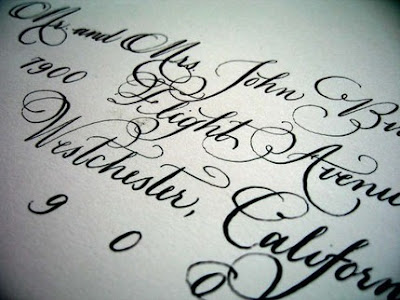 Mr. and Mrs. John Bu
7900 Flight Avenu
Westchester, Californ
9 0 0